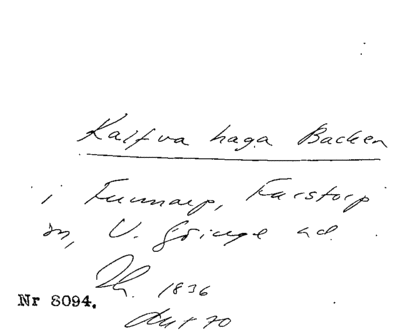 Kalfva haga Backen
i Funnarp, Farstorp
sn, V. Göinge hd.
1836
Nr 8094.
akt 70